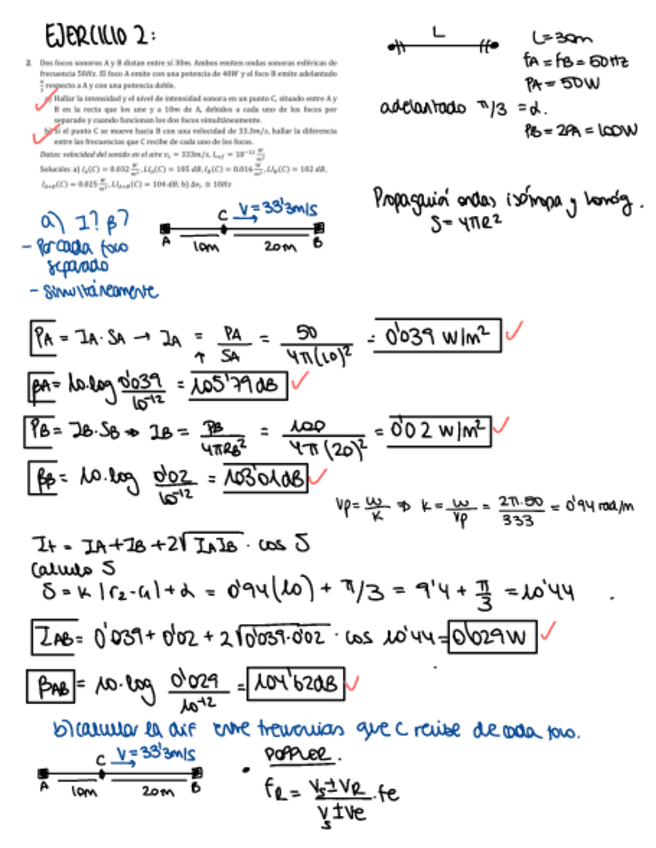 EJERCICIO 2:
2. Dos focos sonoros A y B distan entre sí 30m. Ambos emiten ondas sonoras esféricas de
frecuencia 50Hz. El foco A emite con una potencia de 40W y el foco B emite adelantado
π/3 respecto a A y con una potencia doble.
a) Hallar la intensidad y el nivel de intensidad sonora en un punto C, situado entre A y
B en la recta que los une y a 10m de A, debidos a cada uno de los focos por
separado y cuando funcionan los dos focos simultáneamente.
b) Si el punto C se mueve hacia B con una velocidad de 33.3m/s, hallar la diferencia
entre las frecuencias que C recibe de cada uno de los focos.
Datos: velocidad del sonido en el aire vs = 333m/s, Iref = 10^-12 W/m²
Solución: a) IA(C) = 0.032 W/m², LIA(C) = 105 dB, IB(C) = 0.016 W/m², LIB(C) = 102 dB,
IA+B(C) = 0.025 W/m², LIA+B(C) = 104 dB; b) Δν ≅ 10Hz
L
L=30m
fA = fB = 50Hz
PA = 50W
adelantado π/3 = α.
PB = 2PA = 100W
Propagación ondas isótropa y homóg.
S = 4πR²
a) I? β?
- Por cada foco
separado
- Simultáneamente
C V=33'3m/s
A 10m 20m B
PA = IA·SA → IA = PA/SA = 50/4π(10)² = 0'039 W/m²
βA = 10·log 0'039/10^-12 = 105'79dB
PB = IB·SB ⇒ IB = PB/4πRB² = 100/4π(20)² = 0'02 W/m²
βB = 10·log 0'02/10^-12 = 103'01dB
Vp = ω/K ⇒ K = ω/Vp = 2π·50/333 = 0'94 rad/m
It = IA + IB + 2√IAIB · cos δ
Calculo δ
δ = K |r2-r1| + α = 0'94(10) + π/3 = 9'4 + π/3 = 10'44
IAB = 0'039 + 0'02 + 2√0'039·0'02 · cos 10'44 = 0'029W
βAB = 10·log 0'029/10^-12 = 104'62dB
b) calcular la dif entre frecuencias que C recibe de cada foco.
C V=33'3m/s
A 10m 20m B
• DOPPLER.
fR = Vs±VR/Vs±Ve · fe